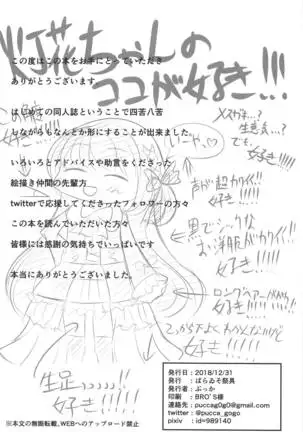 リリ花ちゃんの
ココが好き!!!
この度はこの本をお手にとっていただき
ありがとうございます。
はじめての同人誌ということで四苦八苦
しながらもなんとか形にすることが出来ました。
いろいろとアドバイスや助言をくださった
絵描き仲間の先輩方
twitterで応援してくださったフォロワーの方々
この本を読んでいただいた方々
皆様には感謝の気持ちでいっぱいです
本当にありがとうございました。
メスガキ…?
でも、
好き!!!
声が超カワイイ
好き!!!
黒でシックな
お洋服がカワイイ!
好き!!!
ロングヘアー
好き!!!
生足……
好き!!!
発行日:2018/12/31
発行:ばらみそ祭具
発行者:ぷっか
印刷:BRO'S様
連絡先:puccag0g0@gmail.com
twitter:@pucca_gogo
pixiv:id=989140
※本文の無断転載、WEBへのアップロード禁止